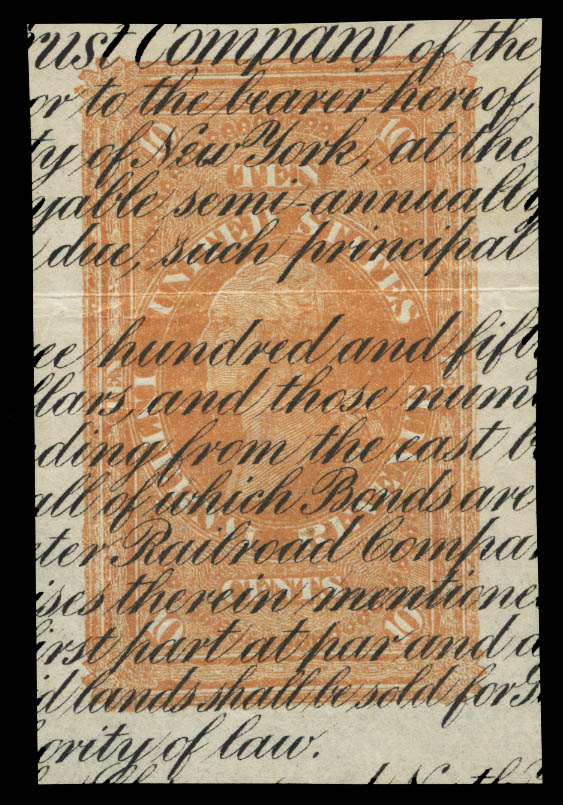 rust Company of the
or to the bearer hereof,
ty of New York, at the
yable semi-annually
due, such principal
ee hundred and fift
llars, and those num
ding from the east b
all of which Bonds are
ter Railroad Compan
ises therein mentione
irst part at par and a
id lands shall be sold for
ority of law.
10 10
TEN
UNITED STATES
INTERNAL REVENUE
CENTS
10 10